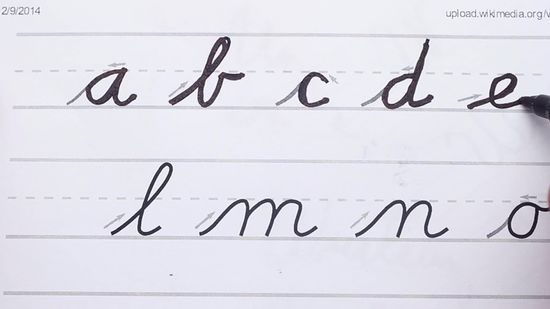 2/9/2014 upload.wikimedia.org/
a b c d e
l m n o